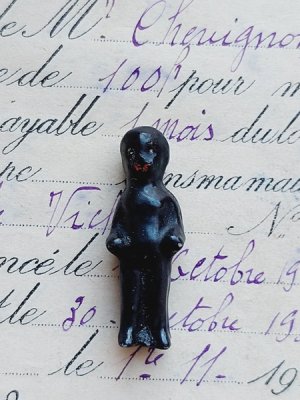 e M. Chevignon
e de 100f pour m
ayable 1 mois du
pe nsmaman
Vic N°
ncé le Octobre 19
le 30 Octobre 19
le 1er 11. 19